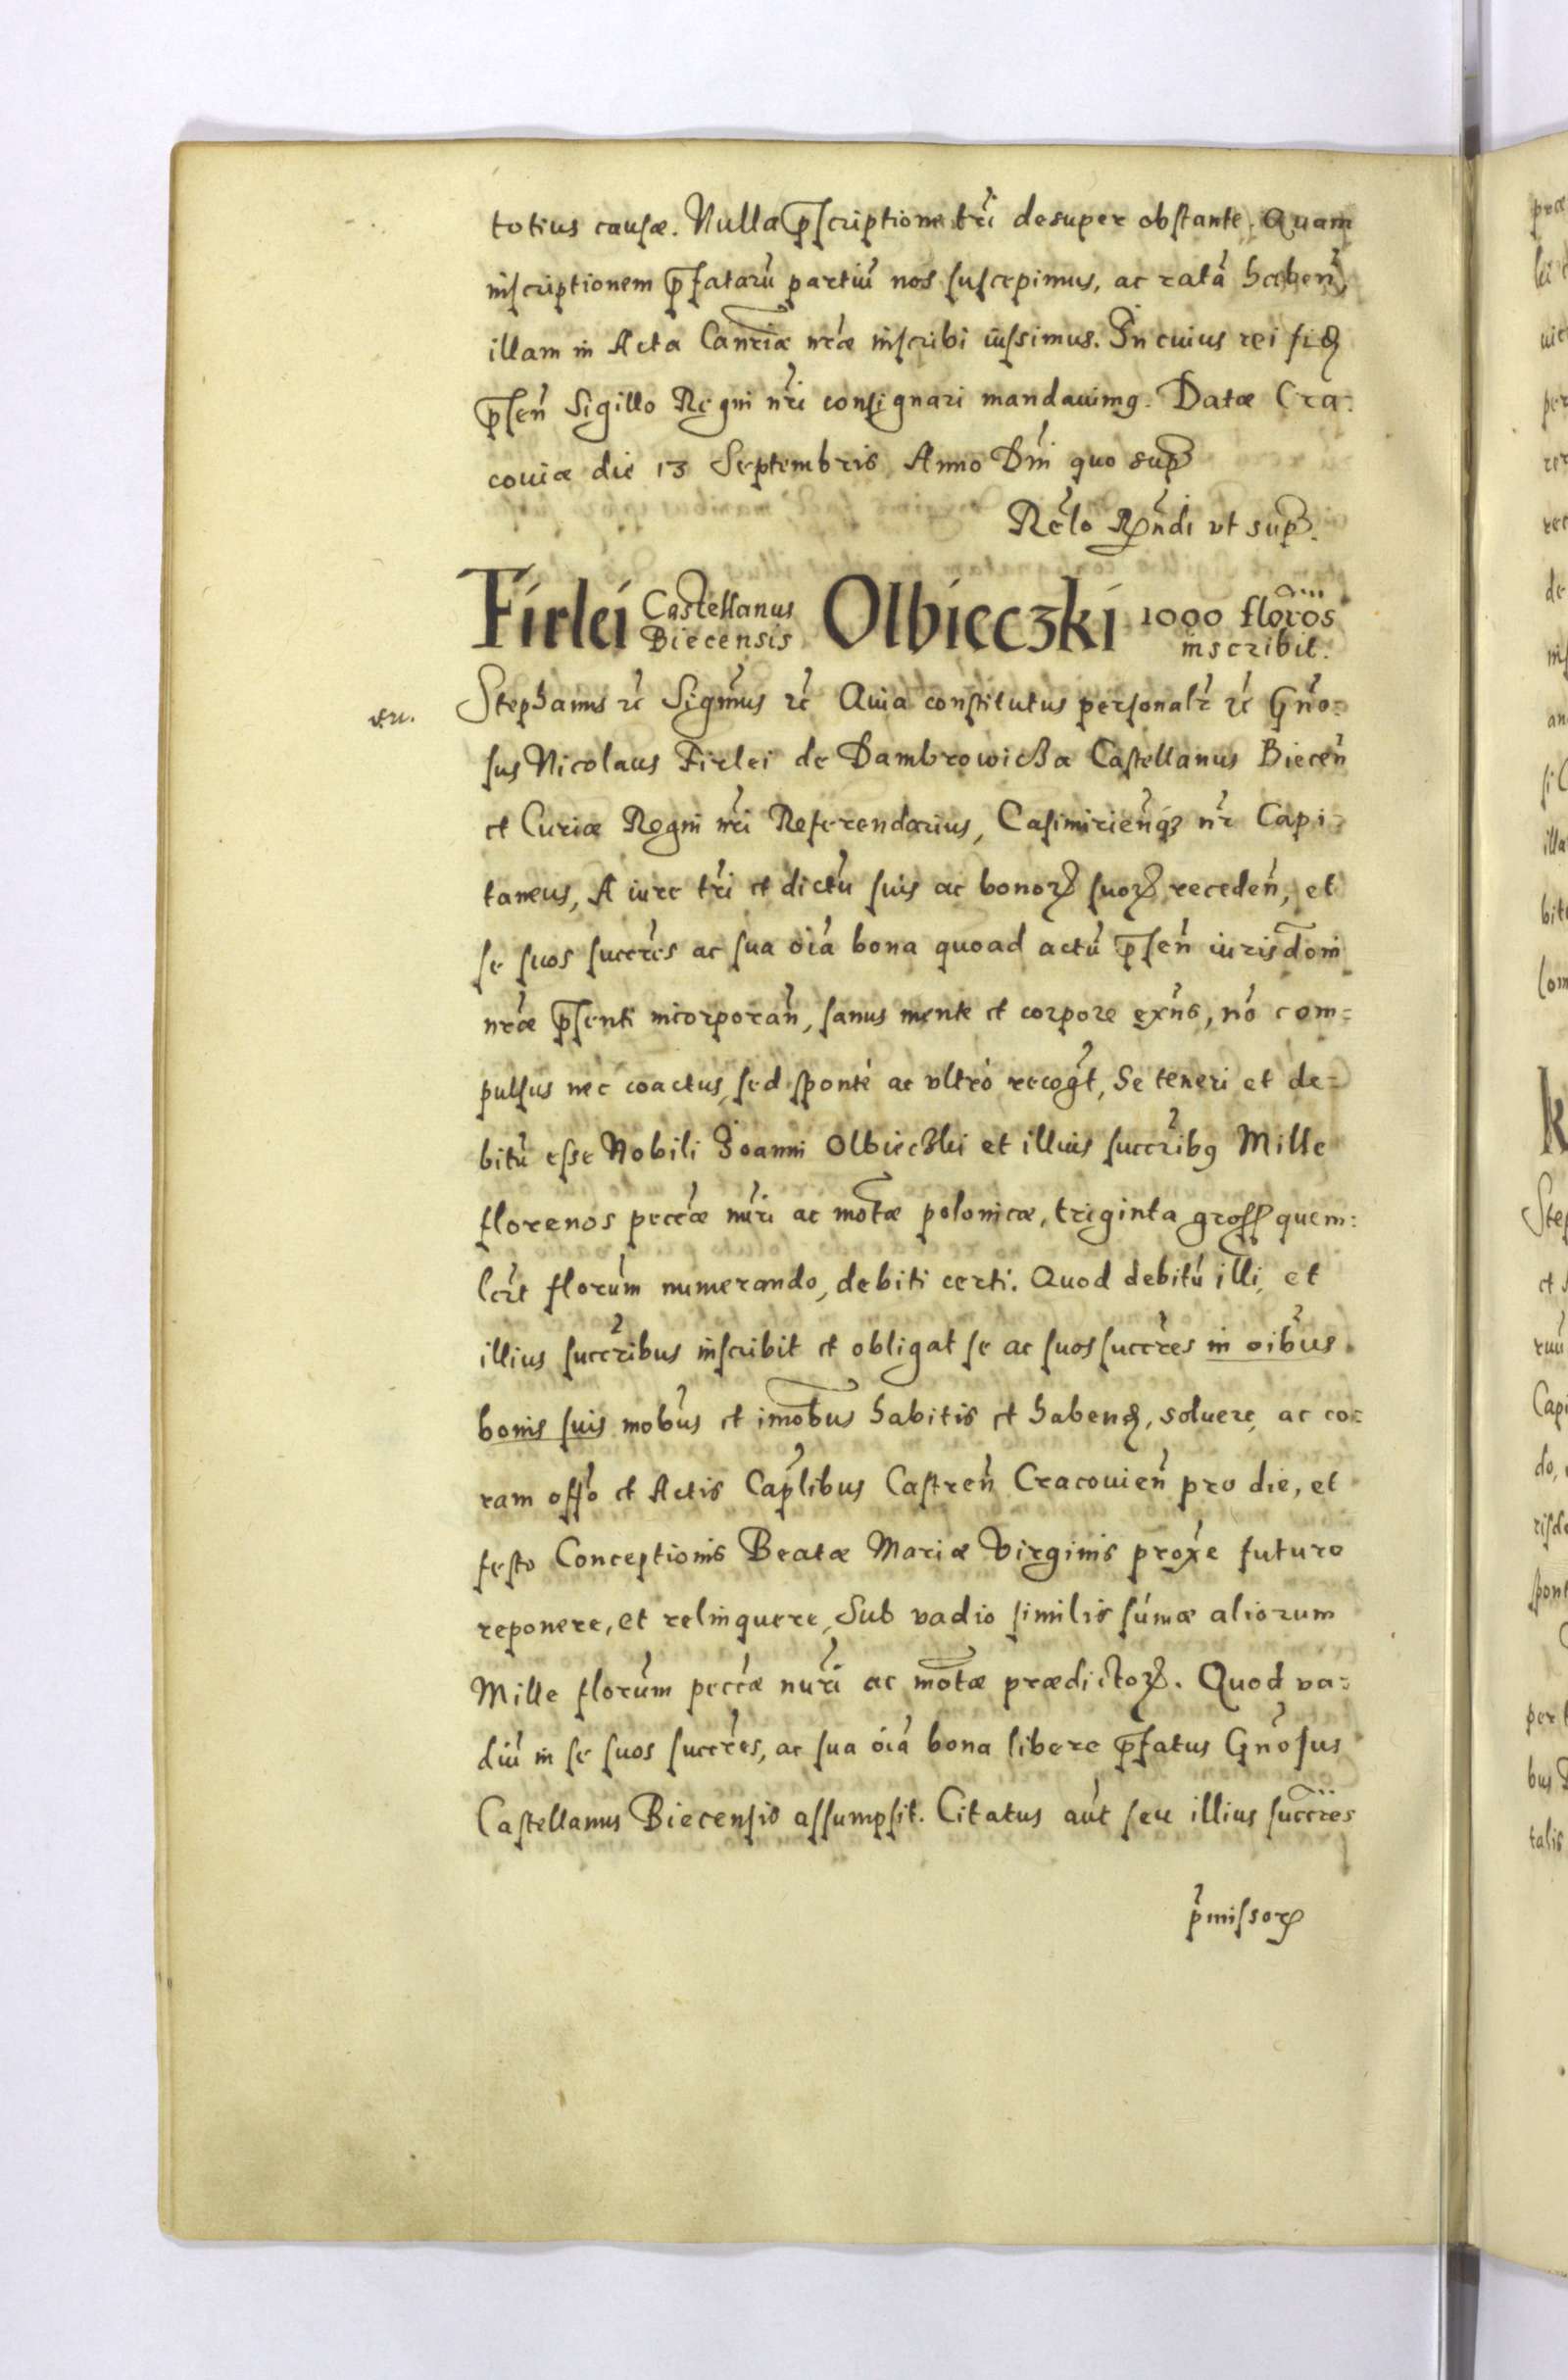 totius causæ. Nulla p̄scriptione tri̅ desuper obstante. Quam
inscriptionem p̄fataru̅ partiu̅ nos suscepimus, ac rata̅ haben̅,
illam in Acta Canc̅riæ nr̅æ inscribi iussimus. In cuius rei fid̅
p̄sen̅ Sigillo Regni nr̅i consignari mandauimꝰ. Datæ Cra-
couiæ die 13 Septembris Anno Dni̅ quo sup̅
Rel̅o Rn̅di vt sup̅.
Firlei Castellanus Biecensis Olbieczki 1000 flor̅os inscribit.
Stephanus rc̅ Sigm̅us rc̅ Quia constitutus personalr̅ rc̅ Gn̅o-
sus Nicolaus Firlei de Dambrowicza Castellanus Biecen̅
et Curiæ Regni nr̅i Referendarius, Casimirien̅qꝫ nr̅ Capi-
taneus, A iure tri̅ et dictu̅ suis ac bonoꝝ suoꝝ receden̅, et
se suos succr̅es ac sua oi̅a bona quoad actu̅ p̄sen̅ iurisdo̅ni
nr̅æ p̄senti incorporan̅, sanus mente et corpore exn̅s, no̅ com-
pulsus nec coactus, sed sponte ac vltro recogt̅, Se teneri et de-
bitu̅ esse Nobili Joanni Olbieczki et illius succr̅ibꝰ Mille
florenos pecc̅æ nu̅ri ac mot̅æ polonicæ, triginta gross̅ quem-
lbt̅ floru̅m numerando, debiti certi. Quod debitu̅ illi, et
illius succr̅ibus inscribit et obligat se ac suos succr̅es in oi̅bus
bonis suis mob̅us et imob̅us habitis et habend̅, soluere, ac co-
ram offo̅ et Actis Cap̅libus Castren̅ Cracouien̅ pro die, et
festo Conceptionis Beatæ Mariæ Virginis prox̅e futuro
reponere, et relinquere, Sub vadio similis sum̅æ aliorum
Mille floru̅m pecc̅æ nu̅ri ac mot̅æ prædictoꝝ. Quod va-
diu̅ in se suos succr̅es, ac sua oi̅a bona libere p̄fatus Gn̅osus
Castellanus Biecensis assumpsit. Citatus aut̅ seu illius succr̅es
p̄missoꝝ